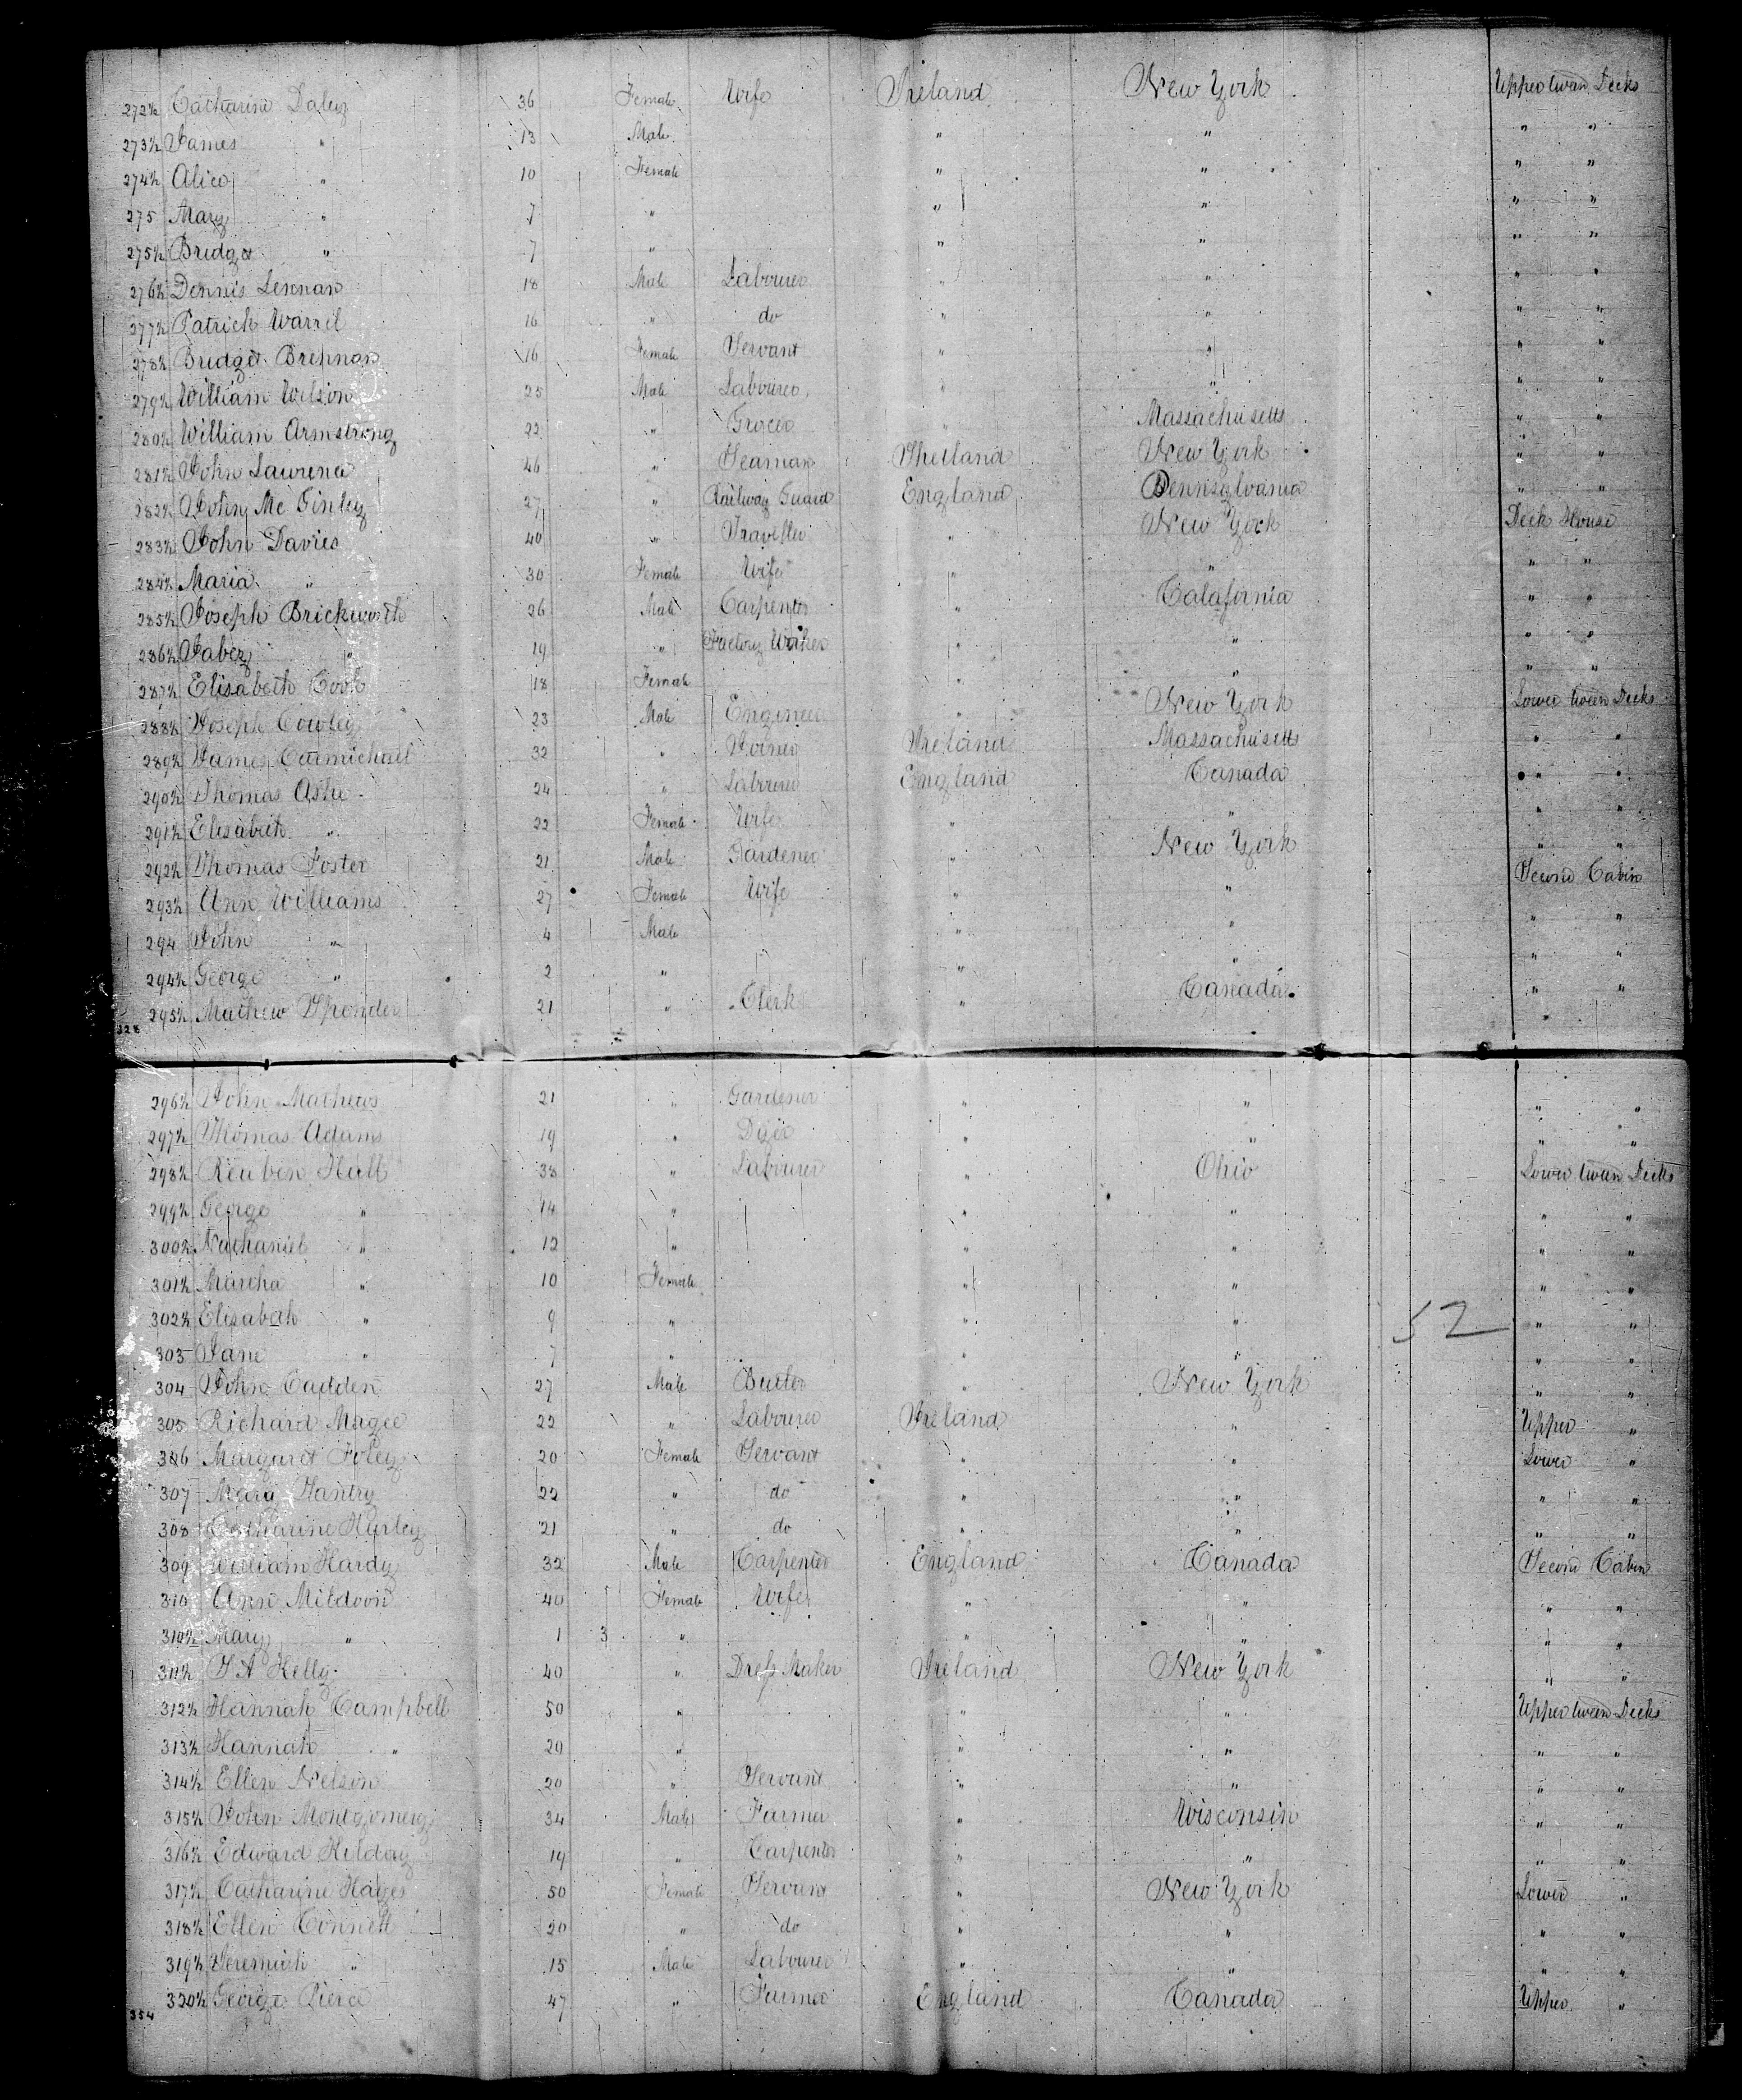 272½ Catharine Daley 36 Female Wife Ireland New York Upper tween Decks
273½ James " 13 Male " " " "
274½ Alice " 10 Female " " " "
275 Mary " 7 " " " " "
275½ Bridget " 7 " " " " "
276½ Dennis Lennan 18 Male Labourer " " " "
277½ Patrick Warrel 16 " do " " " "
278½ Bridget Brennan 16 Female Servant " " " "
279½ William Wilson 25 Male Labourer " " " "
280½ William Armstrong 22 " Grocer " Massachusetts " "
281½ John Laurence 46 " Seaman Shetland New York " "
282½ John Mc Ginley 27 " Railway Guard England Pennsylvania " "
283½ John Davies 40 " Traveller " New York Deck House
284½ Maria " 30 Female Wife " " " "
285½ Joseph Brickworth 26 Male Carpenter " Calafornia " "
286½ Jabez " 19 " Factory Worker " " " "
287½ Elisabeth Cook 18 Female " " " "
288½ Joseph Cowley 23 Male Engineer " New York Lower tween Decks
289½ James Carmichael 32 " Joiner Ireland Massachusetts " "
290½ Thomas Ashe 24 " Labourer England Canada " "
291½ Elisabeth " 22 Female Wife " " " "
292½ Thomas Foster 21 Male Gardener " New York " "
293½ Ann Williams 27 Female Wife " " Second Cabin
294 John " 4 Male " " " "
294½ George " 2 " " " " "
295½ Mathew Sponder 21 " Clerk " Canada " "
328
296½ John Mathews 21 " Gardener " " " "
297½ Thomas Adams 19 " Dyer " " " "
298½ Reuben Hall 38 " Labourer " Ohio Lower tween Decks
299½ George " 14 " " " " "
300½ Nathaniel " 12 " " " " "
301½ Martha " 10 Female " " " "
302½ Elisabeth " 9 " " " 52 " "
303 Jane " 7 " " " " "
304 John Cadden 27 Male Butler " New York " "
305 Richard Magee 22 " Labourer Ireland " Upper "
306 Margaret Foley 20 Female Servant " " Lower "
307 Mary Hantry 22 " do " " " "
308 Catharine Hurley 21 " do " " " "
309 William Hardy 32 Male Carpenter England Canada Second Cabin
310 Ann Mildoon 40 Female Wife " " " "
310½ Mary " 1 3 " " " " "
311½ J A Kelly 40 " Dress Maker Ireland New York " "
312½ Hannah Campbell 50 " " " Upper tween Decks
313½ Hannah " 20 " " " " "
314½ Ellen Nelson 20 " Servant " " " "
315½ John Montgomery 34 Male Farmer " Wisconsin " "
316½ Edward Kilday 19 " Carpenter " " " "
317½ Catharine Hayes 50 Female Servant " New York Lower "
318½ Ellen Connell 20 " do " " " "
319½ Jeremiah " 15 Male Labourer " " " "
320½ George Pierce 47 " Farmer England Canada Upper "
354